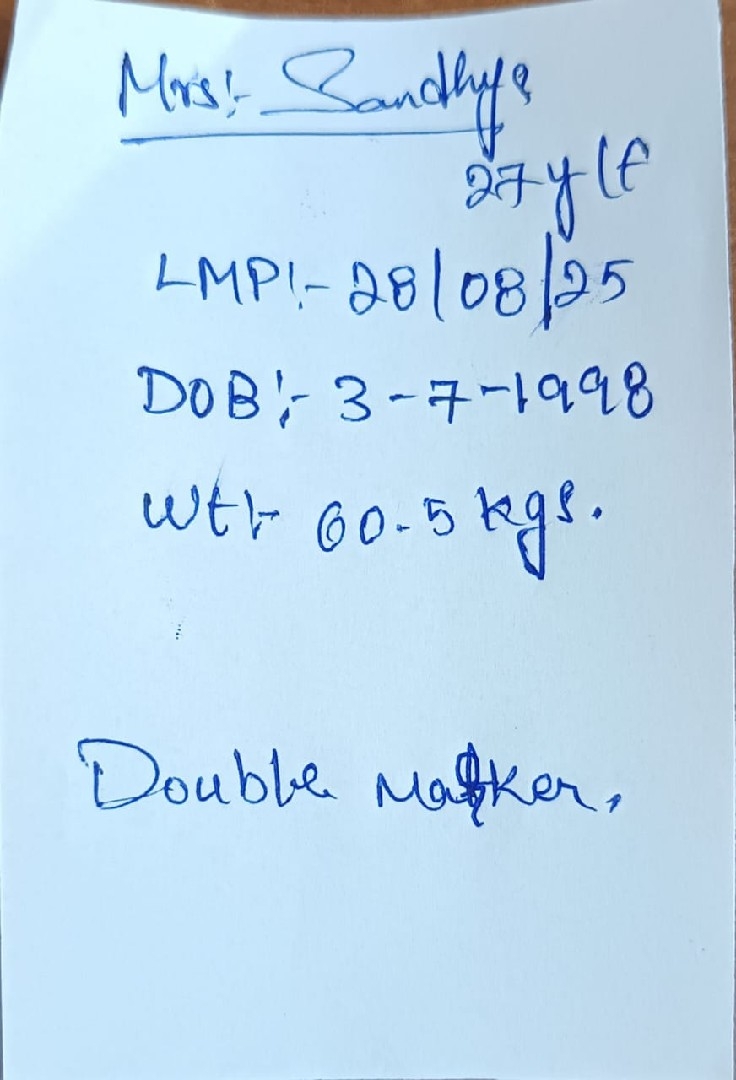 Mrs:- Sandhya
27y/f
LMP:- 28/08/25
DOB:- 3-7-1998
Wt:- 60.5 kgs.
Double Marker.